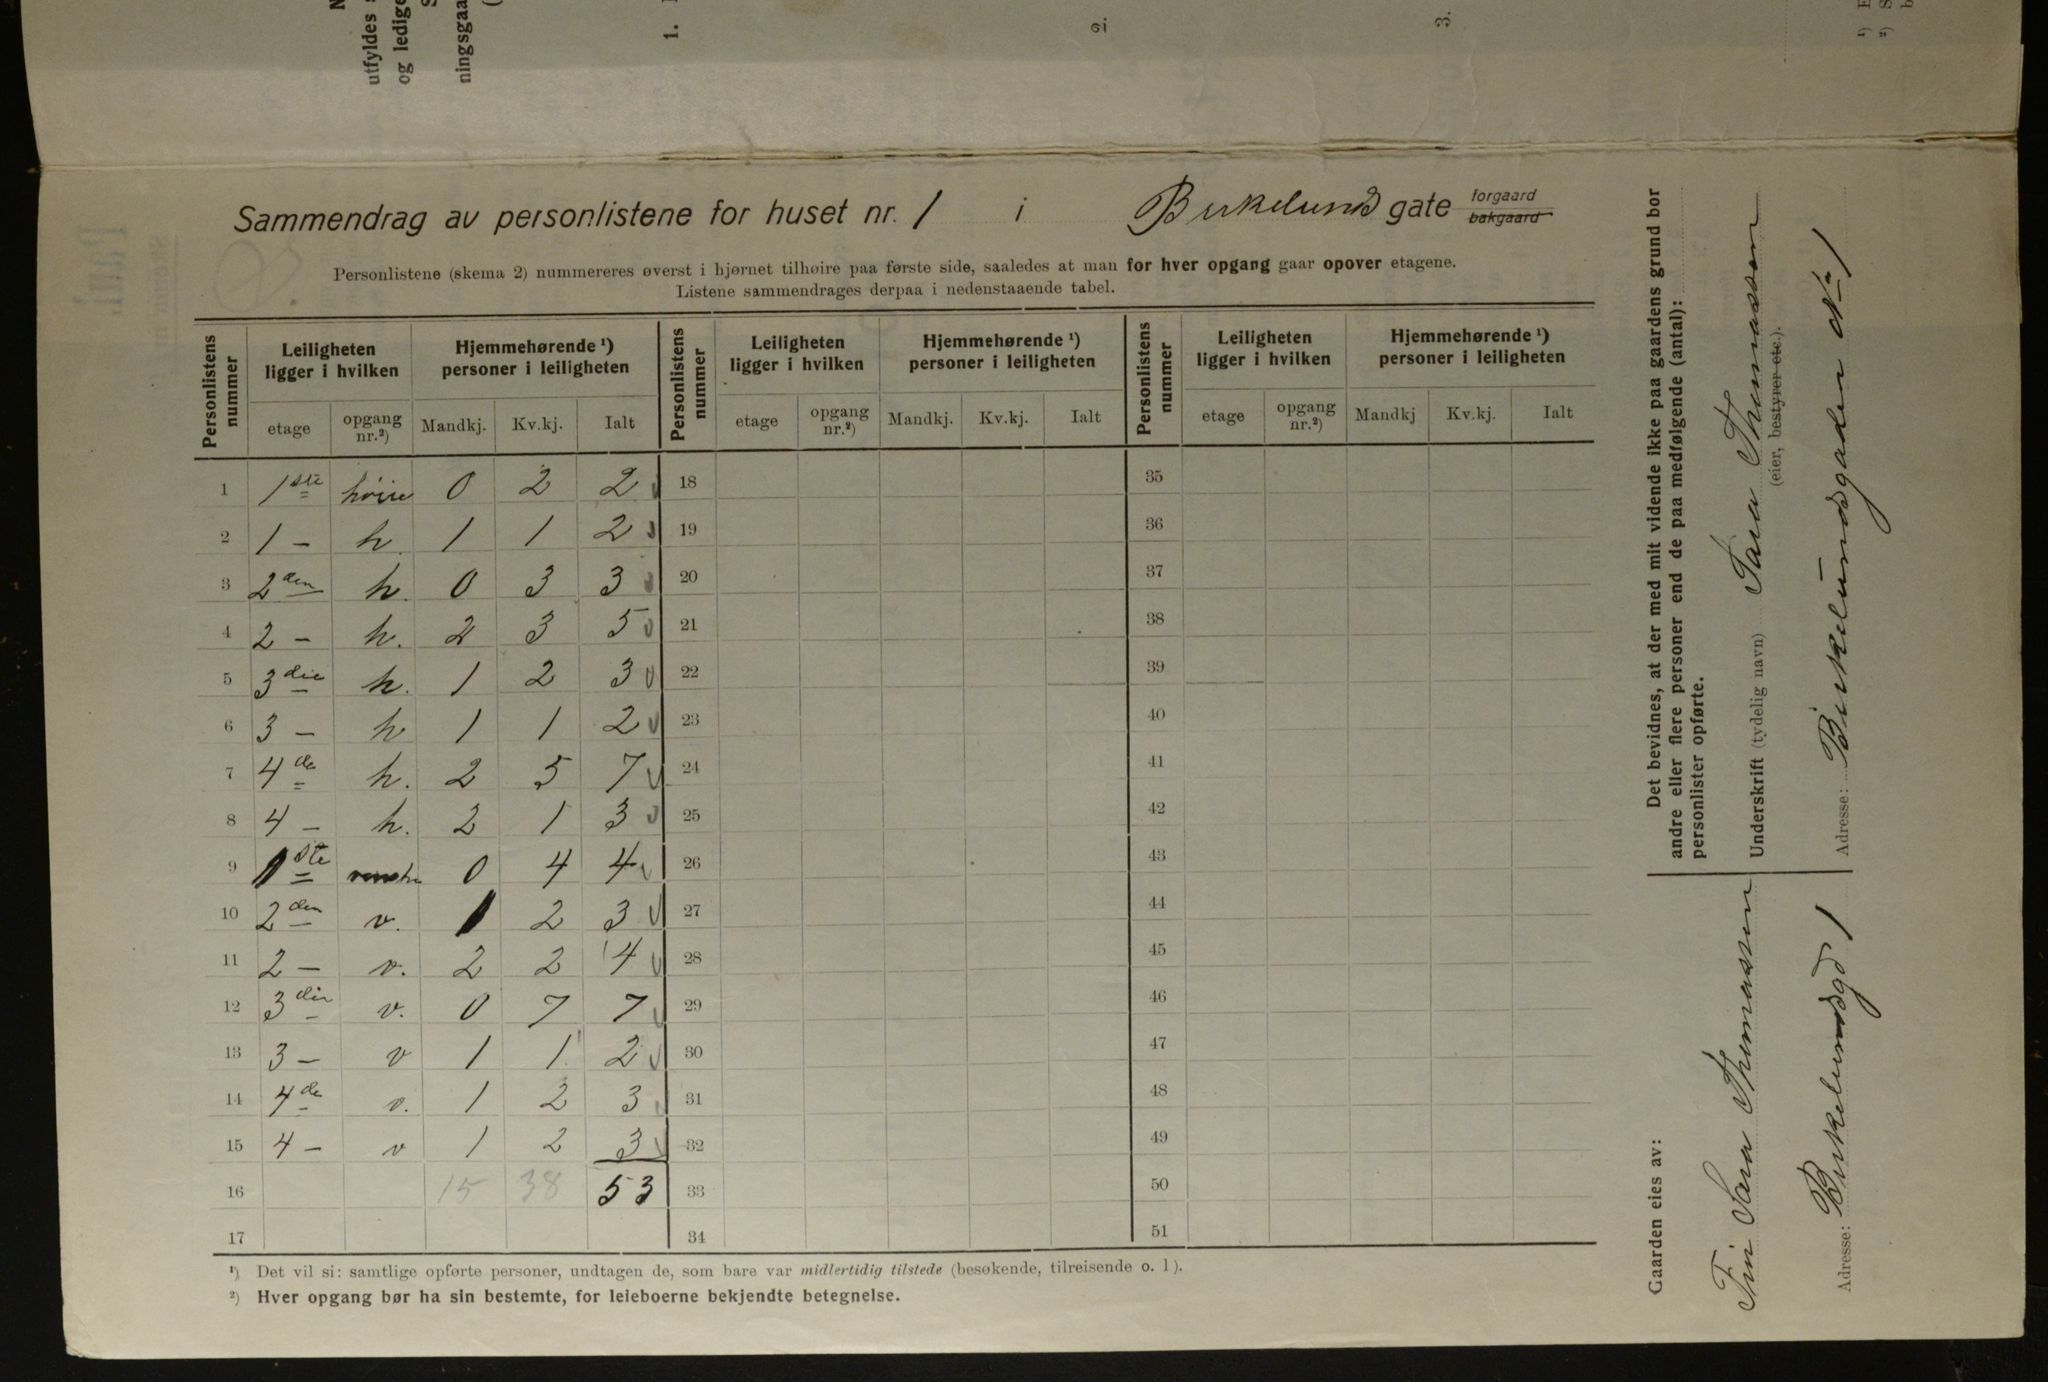 utfyldes
og ledige
ningsgaa
1.
3.
Sammendrag av personlistene for huset nr. 1 i Birkelunds gate forgaard bakgaard
Personlistene (skema 2) nummereres øverst i hjørnet tilhøire paa første side, saaledes at man for hver opgang gaar opover etagene.
Listene sammendrages derpaa i nedenstaaende tabel.
Personlistens nummer | Leiligheten ligger i hvilken | Hjemmehørende ¹) personer i leiligheten | Personlistens nummer | Leiligheten ligger i hvilken | Hjemmehørende ¹) personer i leiligheten | Personlistens nummer | Leiligheten ligger i hvilken | Hjemmehørende ¹) personer i leiligheten
etage | opgang nr.²) | Mandkj. | Kv.kj. | Ialt | etage | opgang nr.²) | Mandkj. | Kv.kj. | Ialt | etage | opgang nr.²) | Mandkj | Kv.kj. | Ialt
1 1ste høire 0 2 2 18 35
2 1 – h. 1 1 2 19 36
3 2den h. 0 3 3 20 37
4 2 – h. 2 3 5 21 38
5 3die h. 1 2 3 22 39
6 3 – h 1 1 2 23 40
7 4de h. 2 5 7 24 41
8 4 – h. 2 1 3 25 42
9 1ste venstre 0 4 4 26 43
10 2den v. 1 2 3 27 44
11 2 – v. 2 2 4 28 45
12 3die v. 0 7 7 29 46
13 3 – v 1 1 2 30 47
14 4de v. 1 2 3 31 48
15 4 – v 1 2 3 32 49
16 15 38 53 33 50
17 34 51
¹) Det vil si: samtlige opførte personer, undtagen de, som bare var midlertidig tilstede (besøkende, tilreisende o. l).
²) Hver opgang bør ha sin bestemte, for leieboerne bekjendte betegnelse.
Det bevidnes, at der med mit vidende ikke paa gaardens grund bor
andre eller flere personer end de paa medfølgende (antal):
personlister opførte.
Underskrift (tydelig navn) Sara Thomassen
(eier, bestyrer etc.).
Adresse: Birkelundsgaden No 1
Gaarden eies av:
Sara Thomassen
Adresse: Birkelundsgd 1